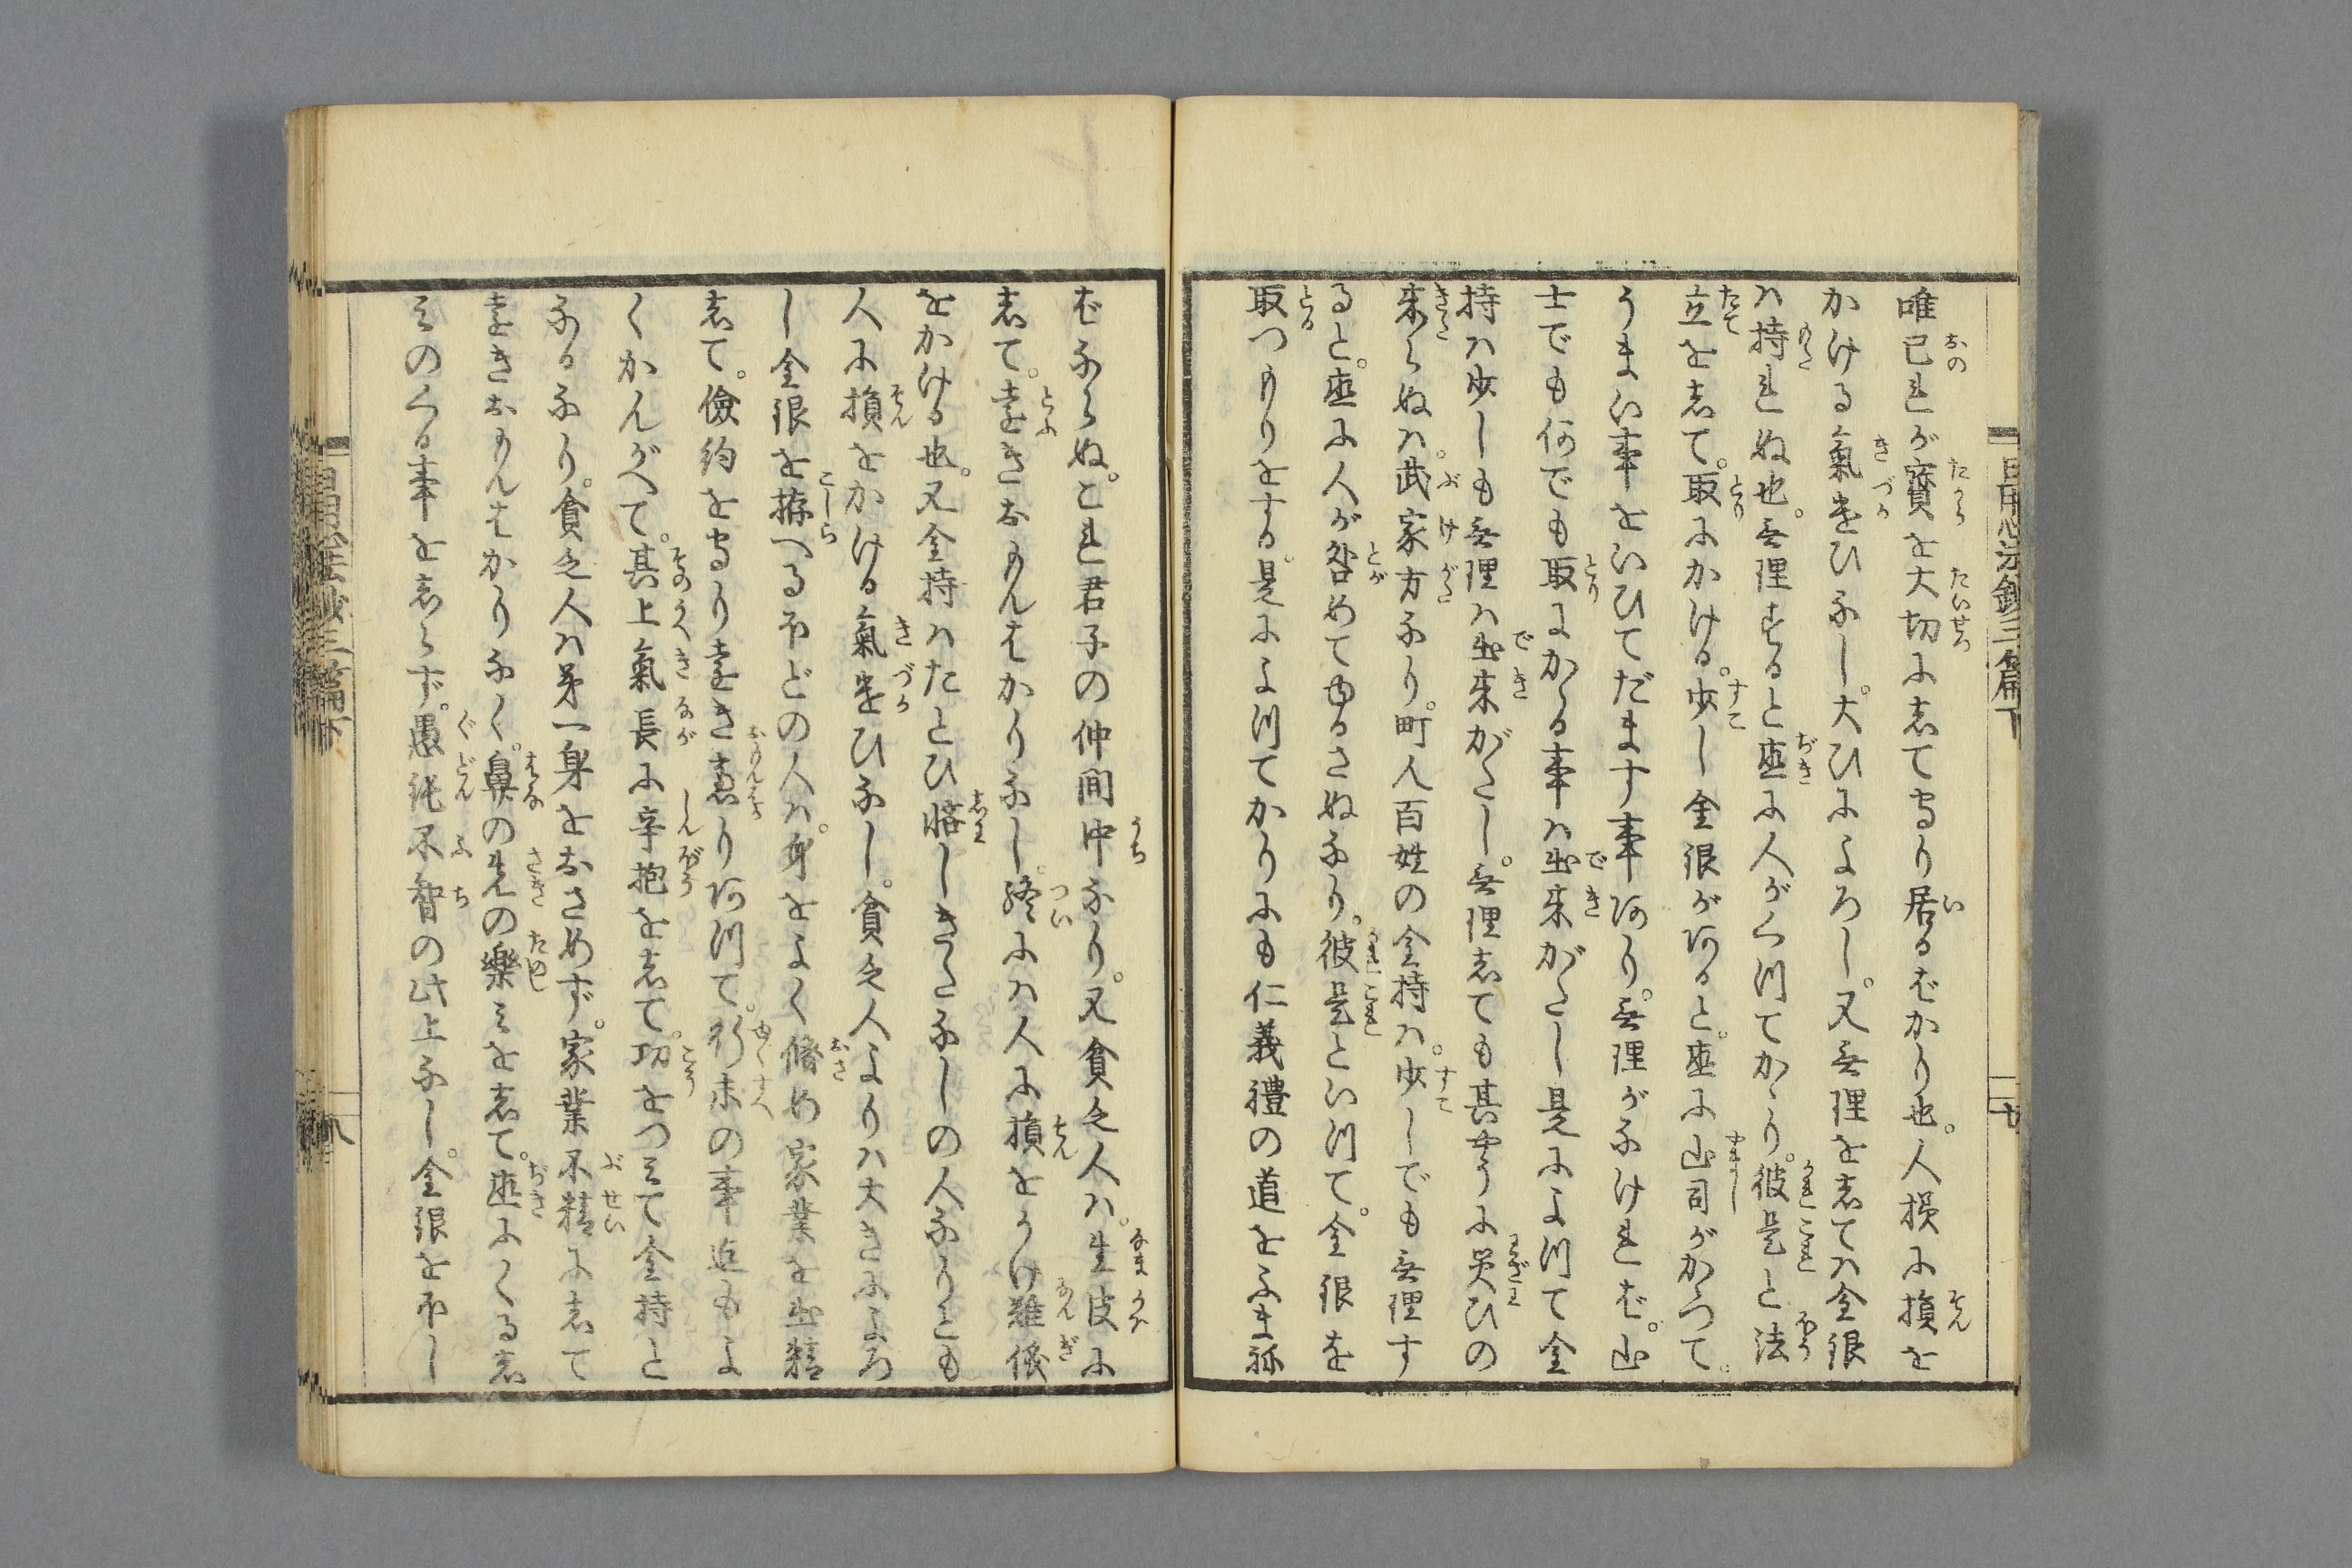 日用心法鈔三篇下
唯己れが寳を大切にして守り居るばかり也。人損に損を
かける氣遣ひなし。大ひによろし。又無理をしては金銀
は持れぬ也。無理をすると直に人がくつてかゝり。彼是と法
立をして。取にかける。少し金銀があると。直に山司がかゝつて。
うまい事をいひてだます事あり。無理がなければ。山
士でも何でも取にかゝる事は出来がたし是によつて金
持は少しも無理は出来がたし。無理しても其やうに災ひの
来らぬは。武家方なり。町人百姓の金持は。少しでも無理す
ると。直に人が咎めてゆるさぬなり。彼是といつて。金銀を
取つもりをする。是によつてかりにも仁義禮の道をふま祢
ばならぬ。これ君子の仲間中なり。又貧乏人は。生皮に
して。遠きおもんはかりなし。終には人に損をうけ難儀
をかける也。又金持はたとひ悋しきゝなしの人なりとも
人に損をかける氣遣ひなし。貧乏人よりは大きによろ
し金銀を拵へるほどの人は。身をよく脩め家業を出精
して。儉約を守り遠き慮りあつて。行末の事迄もよ
くかんがへて。其上氣長に辛抱をして。功をつミて金持と
なるなり。貧乏人は第一身をおさめず。家業不精にして
遠きおもんはかりなく。鼻の先の樂ミを志て。直にくる志
ミのくる事を志らず。愚鈍不智の此上なし。金銀をほし